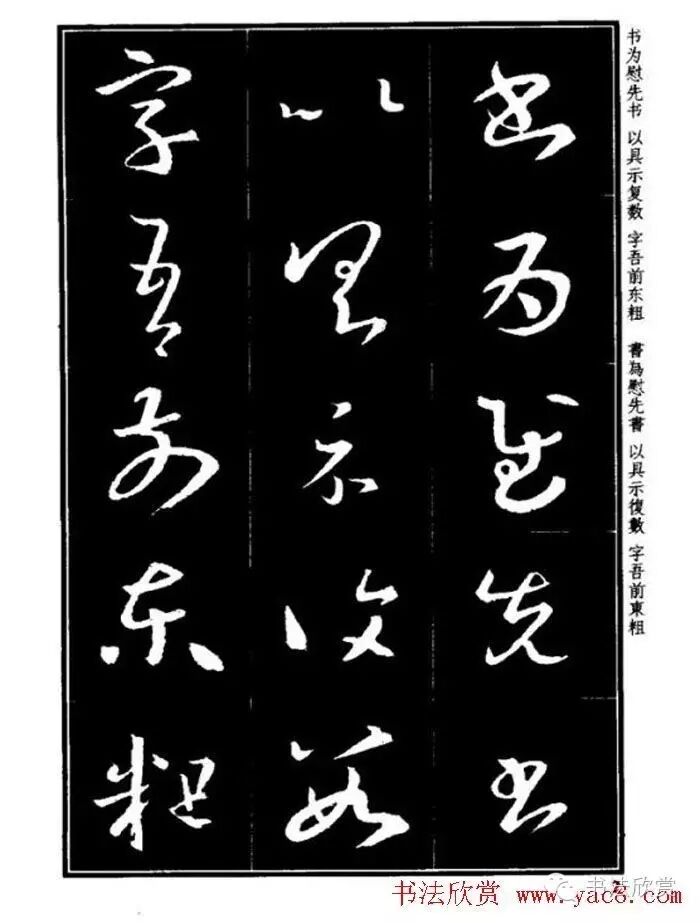 書為慰先書
以具示復數
字吾前東粗
书为慰先书 以具示复数 字吾前东粗 書為慰先書 以具示復數 字吾前東粗
书法欣赏 www.yac8.com
书法欣赏